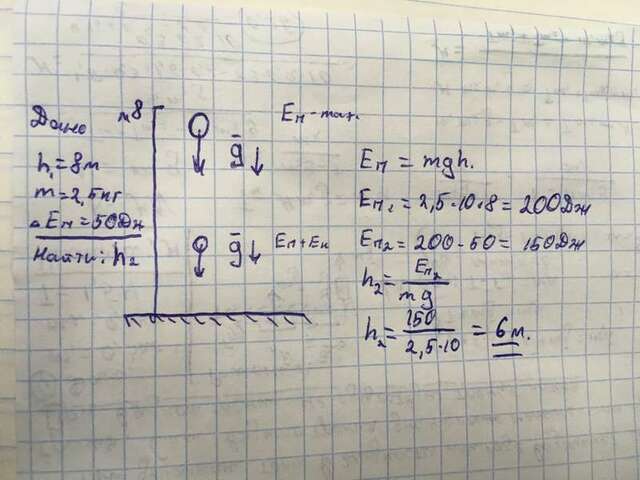 Дано
h₁ = 8м
m = 2,5кг
ΔEп = 50Дж
Найти: h₂
8
Eп - max.
g
g
Eп + Eк
Eп = mgh.
Eп₁ = 2,5·10·8 = 200Дж
Eп₂ = 200 - 50 = 150Дж
h₂ = Eп₂ / mg
h₂ = 150 / 2,5·10 = 6м.